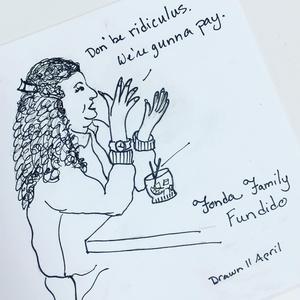 Don't be ridiculus.
We're gunna pay.
Fonda Family
Fundido
Drawn 11 April